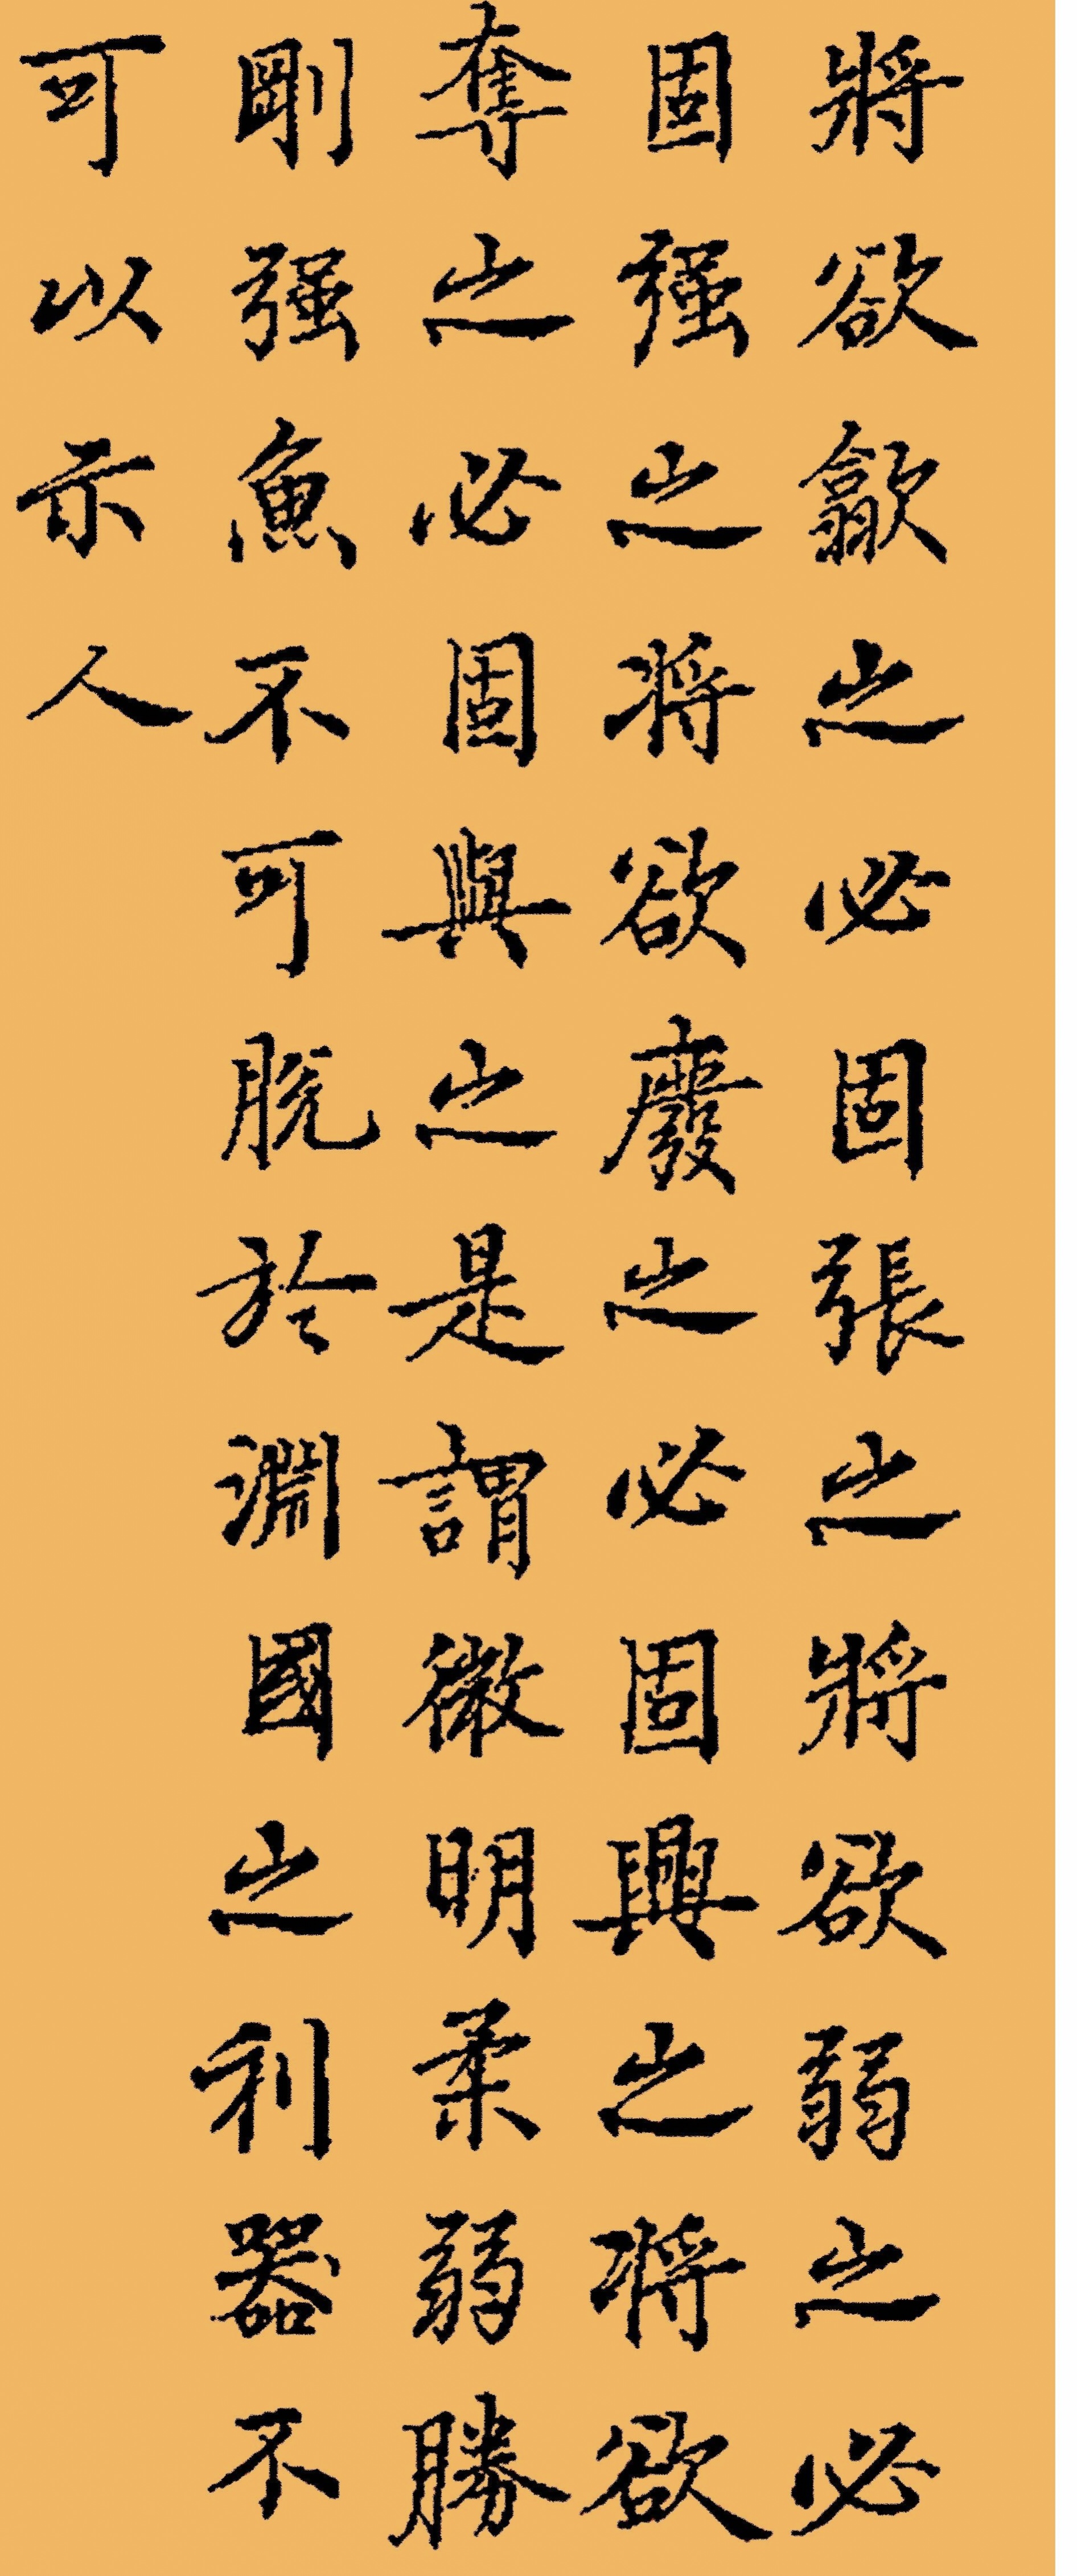 將欲歙之必固張之將欲弱之必
固强之将欲廢之必固興之将欲
奪之必固與之是謂微明柔弱勝
剛强魚不可脱於淵國之利器不
可以示人